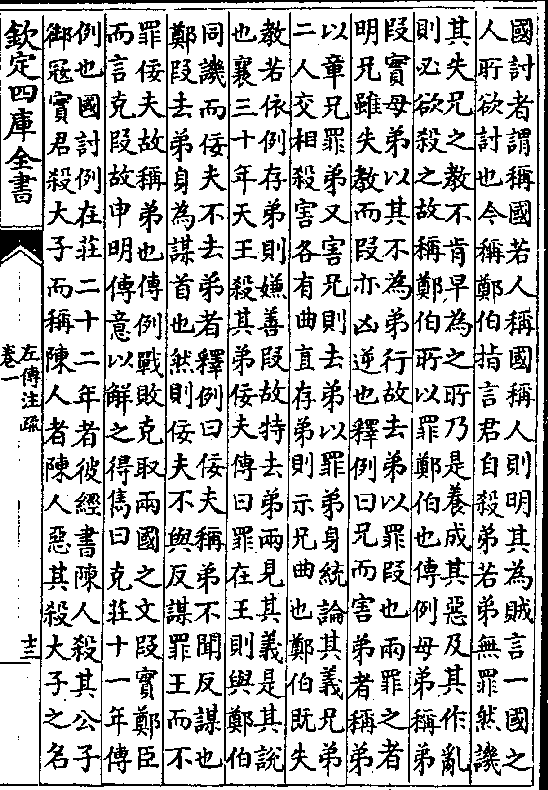 國討者謂稱國若人稱國稱人則明其為賊言一國之
人所欲討也今稱鄭伯指言君自殺弟若弟無罪然譏
其失兄之教不肯早為之所乃是養成其惡及其作亂
則必欲殺之故稱鄭伯所以罪鄭伯也傳例母弟稱弟
段實母弟以其不為弟行故去弟以罪段也兩罪之者
明兄雖失教而段亦凶逆也釋例曰兄而害弟者稱弟
以章兄罪弟又害兄則去弟以罪弟身統論其義兄弟
二人交相殺害各有曲直存弟則示兄曲也鄭伯既失
教若依例存弟則嫌善段故特去弟兩見其義是其說
也襄三十年天王殺其弟佞夫傳曰罪在王則與鄭伯
同譏而佞夫不去弟者釋例曰佞夫稱弟不聞反謀也
鄭段去弟身為謀首也然則佞夫不與反謀罪王而不
罪佞夫故稱弟也傳例戰敗克取兩國之文段實鄭臣
而言克段故申明傳意以解之得儁曰克莊十一年傳
例也國討例在莊二十二年者彼經書陳人殺其公子
御寇實君殺大子而稱陳人者陳人惡其殺大子之名
欽定四庫全書
左傳注疏
卷一
十三